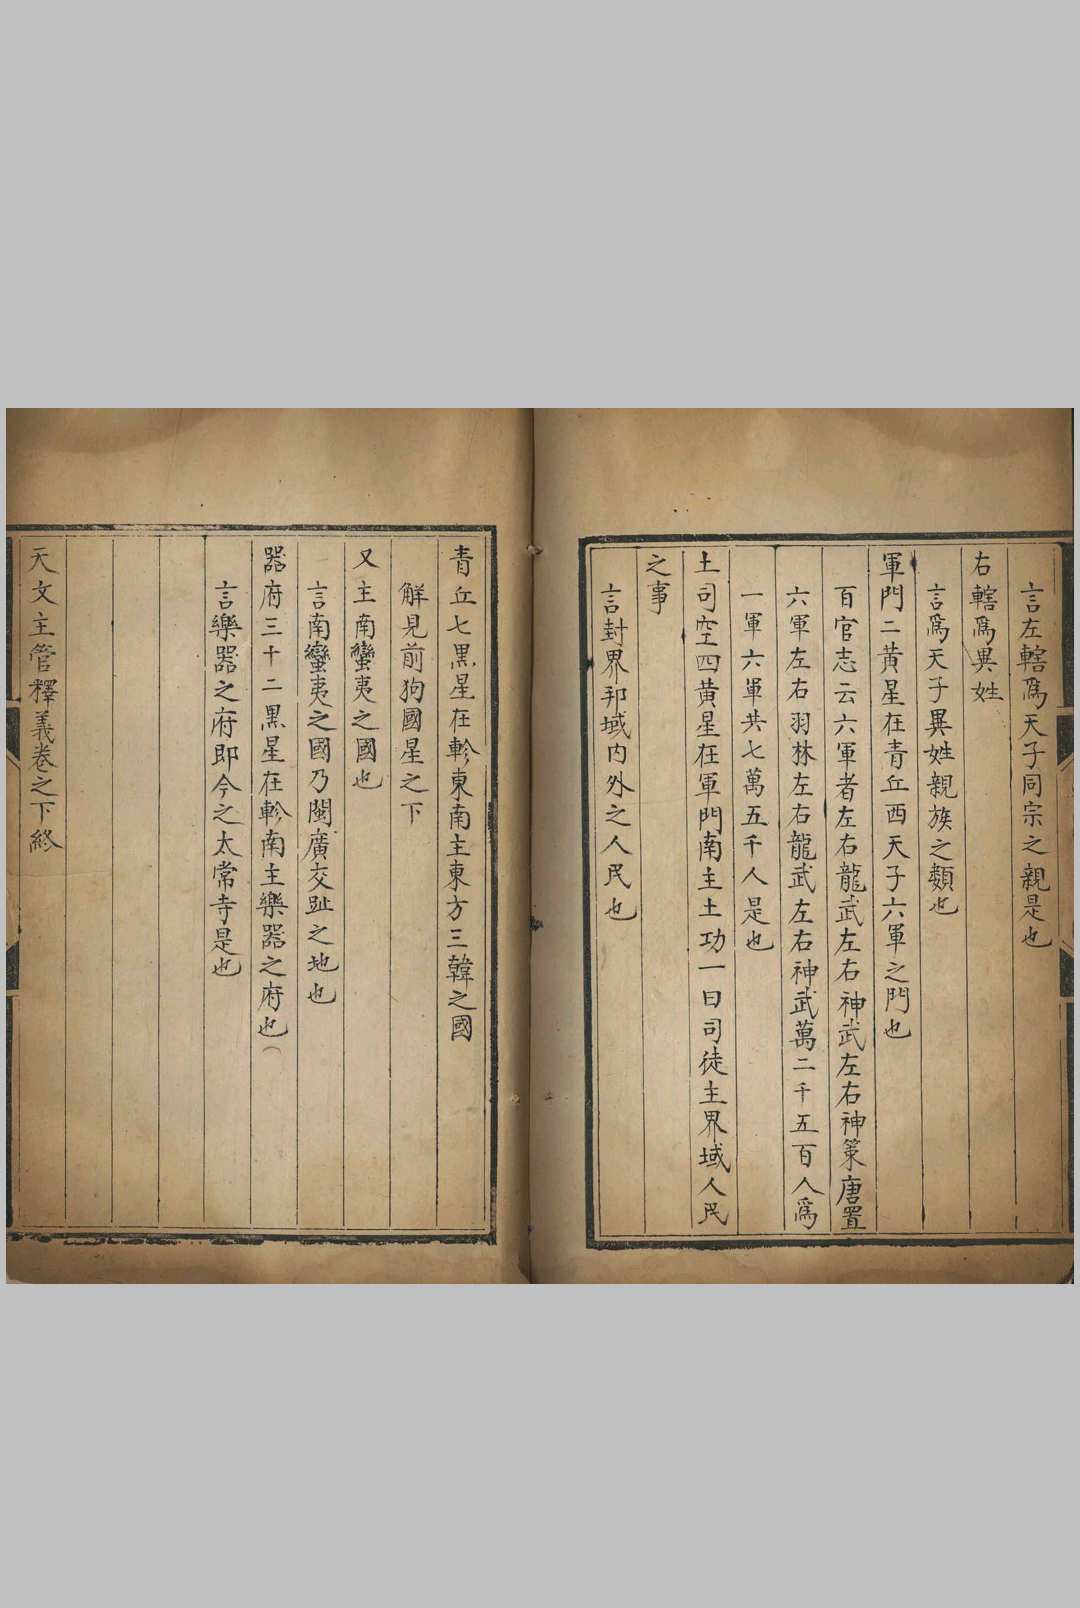 言左轄爲天子同宗之親是也
右轄爲異姓
言爲天子異姓親族之類也
軍門二黃星在青丘西天子六軍之門也
百官志云六軍者左右龍武左右神武左右神策唐置
六軍左右羽林左右龍武左右神武萬二千五百人爲
一軍六軍共七萬五千人是也
土司空四黃星在軍門南主土功一曰司徒主界域人民
之事
言封界邦域内外之人民也
青丘七黑星在軫東南主東方三韓之國
解見前狗國星之下
又主南蠻夷之國也
言南蠻夷之國乃閩廣交趾之地也
器府三十二黑星在軫南主樂器之府也
言樂器之府即今之太常寺是也
天文主管釋義卷之下終